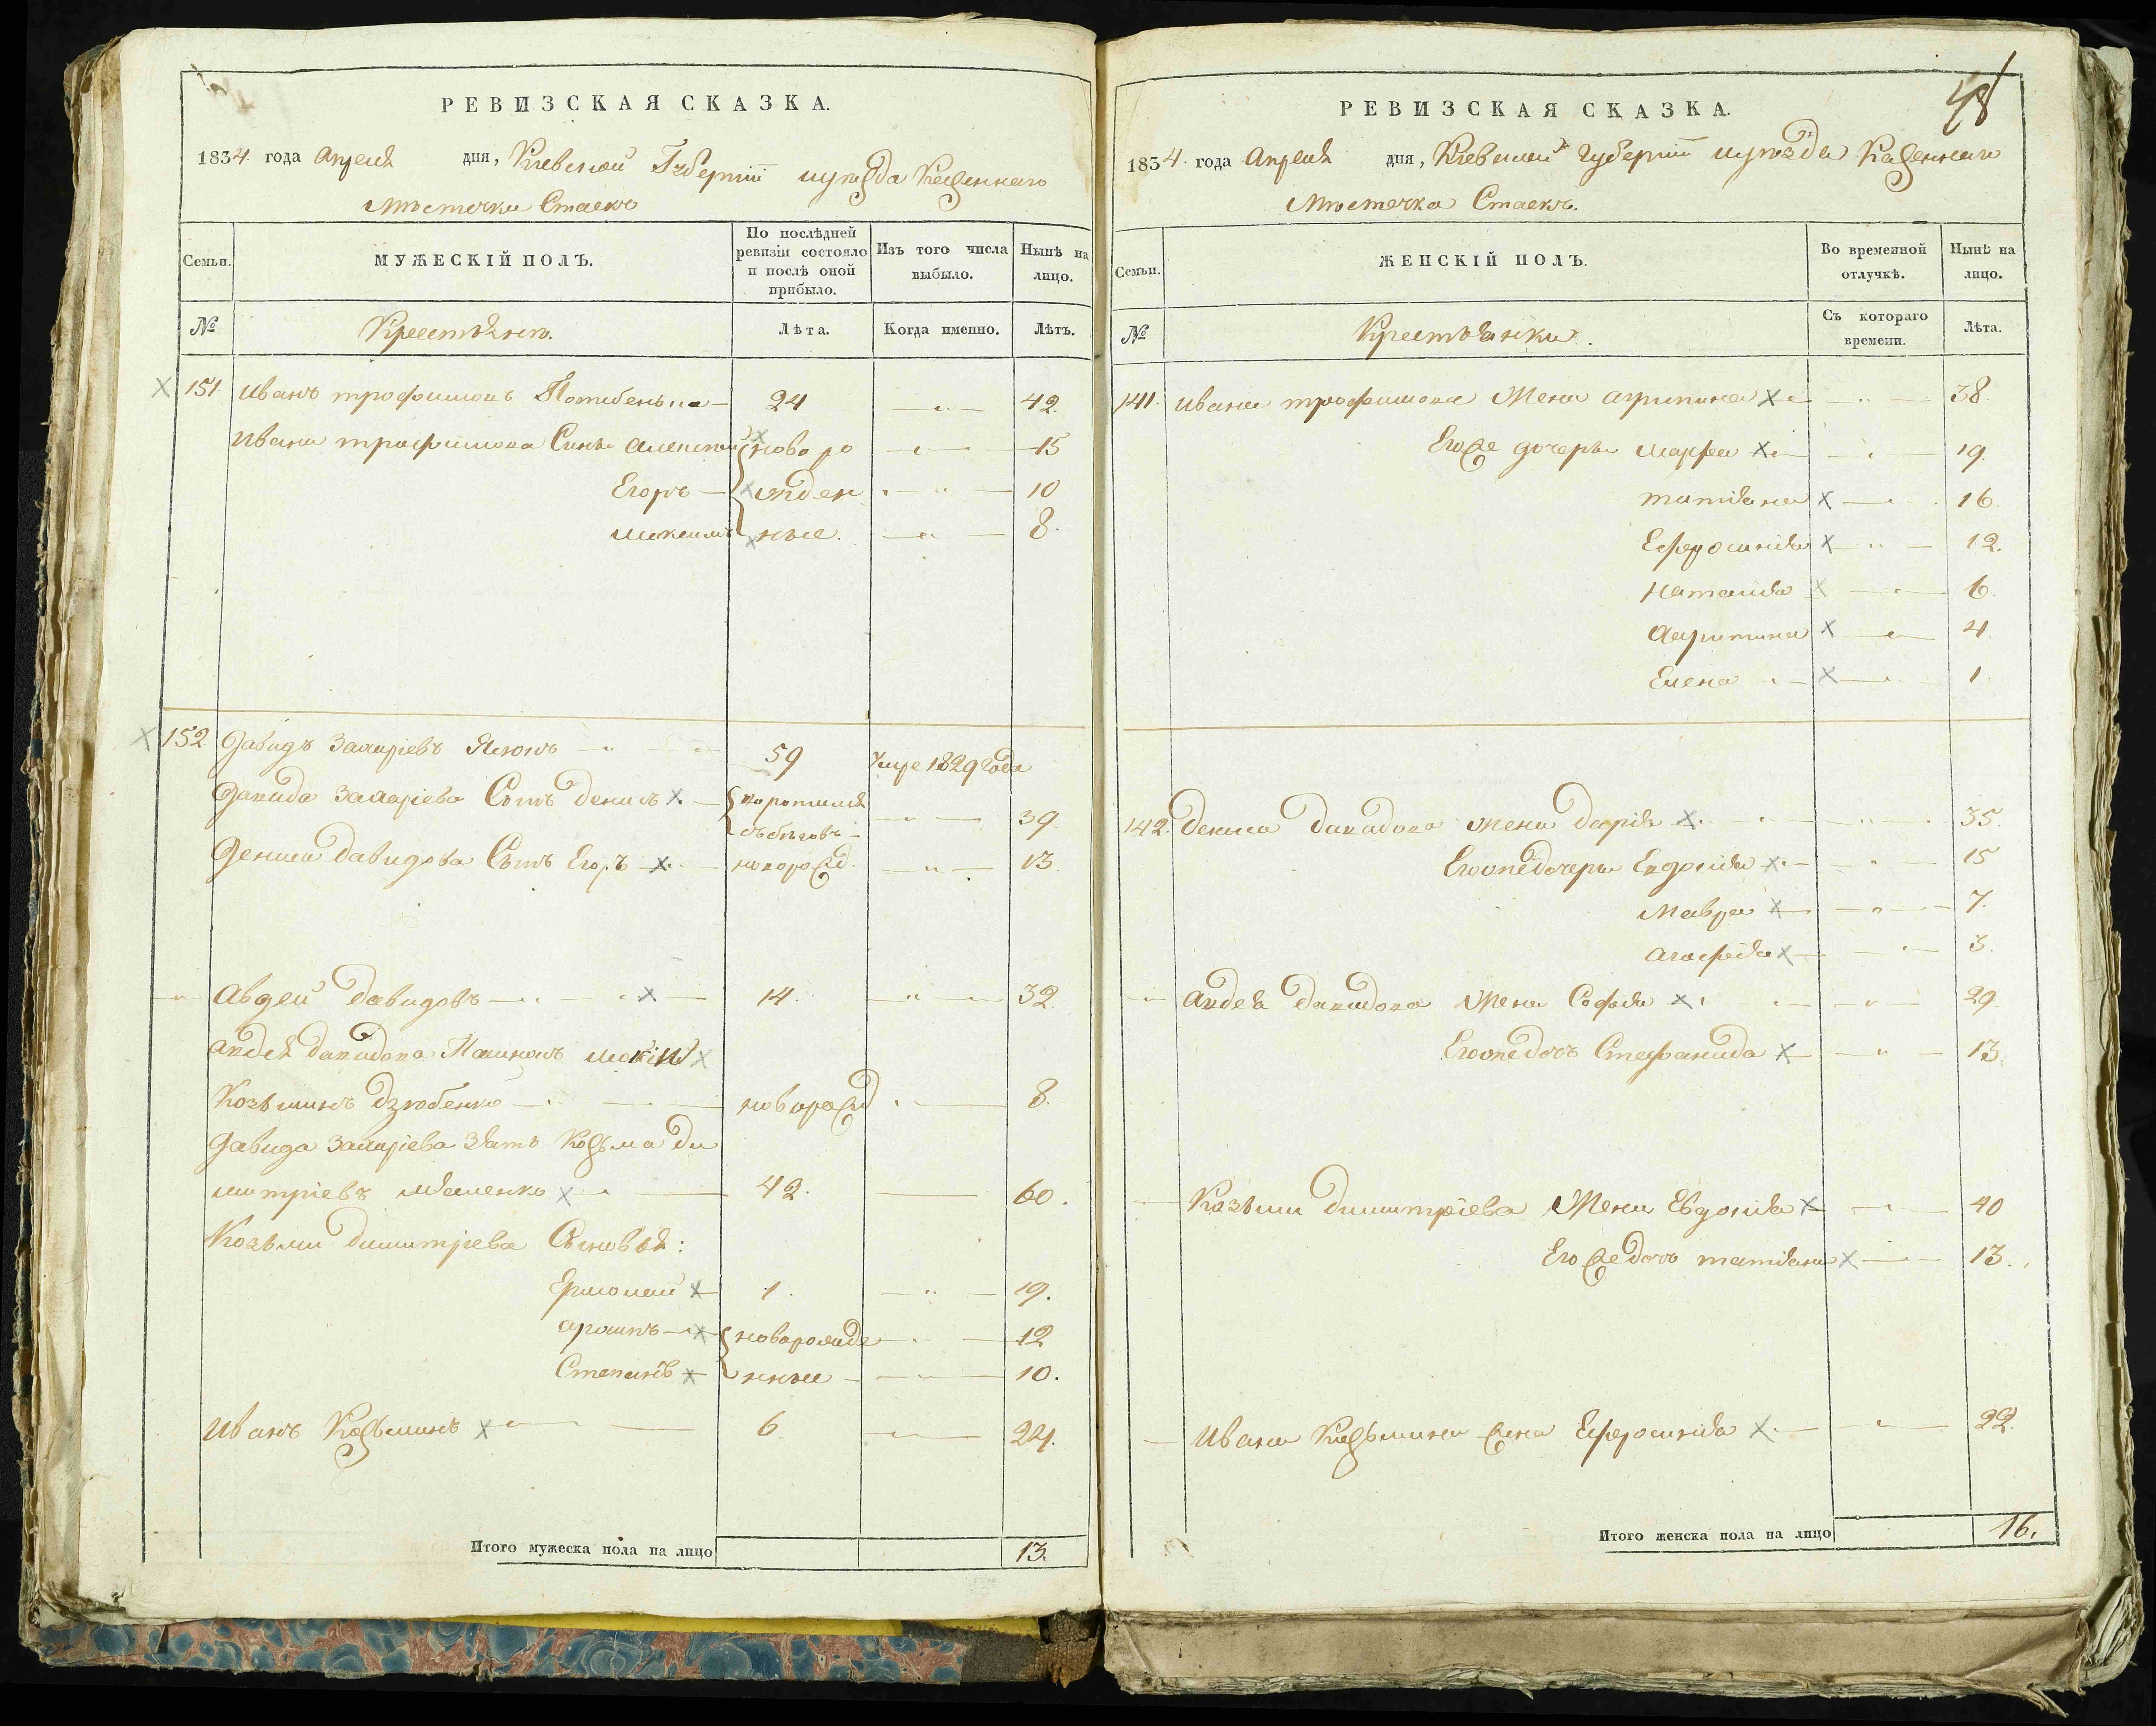 РЕВИЗСКАЯ СКАЗКА.
1834. года Апреля дня, Киевской Губернiи уезда Казеннаго
Мѣстечка Стаекъ
Семьи.
МУЖЕСКІЙ ПОЛЪ.
По послѣдней ревизіи состояло и послѣ оной прибыло.
Изъ того числа выбыло.
Нынѣ на лицо.
№
Крестьяне.
Лѣта.
Когда именно.
Лѣтъ.
151 Иванъ трофимовъ 24 42.
Ивана трофимова Сынъ Алексей новоро 15
Егоръ жден 10
Максимъ ные. 8.
152 Давидъ Захаріевъ 59 Умре 1829 года
Давида Захаріева Сынъ денисъ воротился
съ беговъ 39.
Дениса Давидова Сынъ Егоръ новорожд. 13.
Авдей давидовъ 14. 32.
Авдея давидова Пасынокъ
Козьминъ дзюбенко новорожд 8.
Давида Захаріева Зять Козьма ди
митріевъ 42. 60.
Козьмы димитріева Сыновья:
Ермолай 1. 19.
новорожде 12
Степанъ нные 10.
Иванъ Козьминъ 6 24.
Итого мужеска пола на лицо 13.
48
РЕВИЗСКАЯ СКАЗКА.
1834. года Апреля дня, Киевской Губерніи уезда Казеннаго
Мѣстечка Стаекъ.
Семьи.
ЖЕНСКІЙ ПОЛЪ.
Во временной отлучкѣ.
Нынѣ на лицо.
№
Крестьянки.
Съ котораго времени.
Лѣта.
141. Ивана трофимова Жена агрипина 38.
Егоже дочери марфа 19.
татіяна 16
Ефросинія 12.
Наталія 6.
Агрипина 4.
Елена 1.
142. дениса давидова жена дарія 35.
Егоже дочери Евдокія 15
Мавра 7.
Агафія 3.
Авдея давидова Жена Софія 29
Егоже дочь Стефанида 13.
Козьмы димитріева Жена Евдокія 40
Егоже дочь татіяна 13.
Ивана Козьмина жена Ефросинія 22.
Итого женска пола на лицо 16.